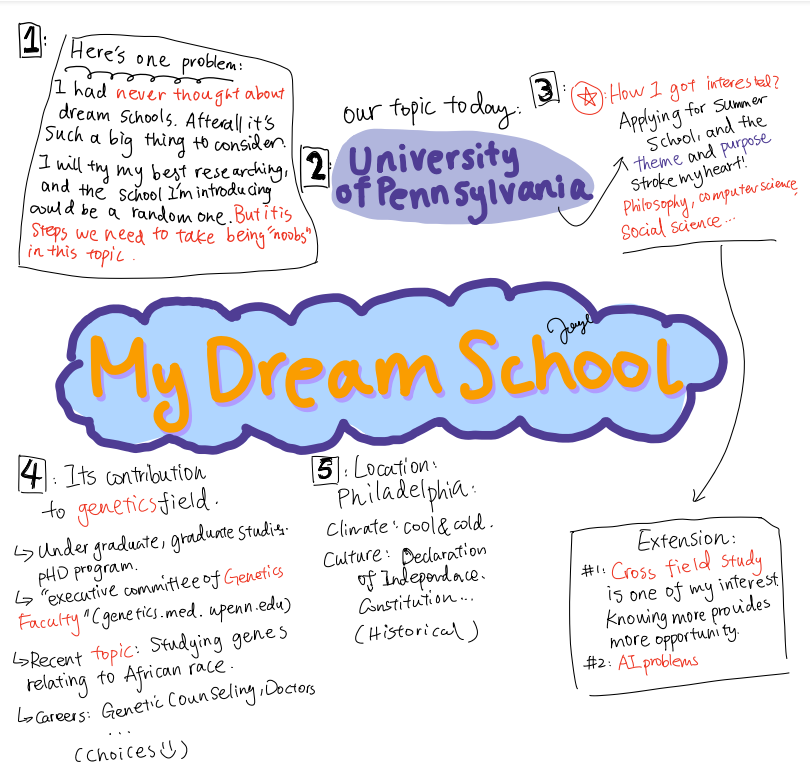 1:
Here's one problem:
I had never thought about
dream schools. Afterall it's
such a big thing to consider.
I will try my best researching,
and the school I'm introducing
could be a random one. But it is
steps we need to take being "noobs"
in this topic.
our topic today:
2
University
of Pennsylvania
3:
How I got interested?
Applying for Summer
School, and the
theme and purpose
stroke my heart!
Philosophy, computer science,
Social science...
My Dream School
4: Its contribution
to genetics field.
↳ Undergraduate, graduate studies.
PHD program.
↳ "executive committee of Genetics
Faculty" (genetics.med.upenn.edu)
↳ Recent topic: Studying genes
relating to African race.
↳ Careers: Genetic Counseling, Doctors
...
(Choices)
5: Location:
Philadelphia:
Climate: cool & cold.
Culture: Declaration
of Indepondace.
Constitution...
(Historical)
Extension:
#1: Cross field study
is one of my interest.
Knowing more provides
more opportunity.
#2: AI problems